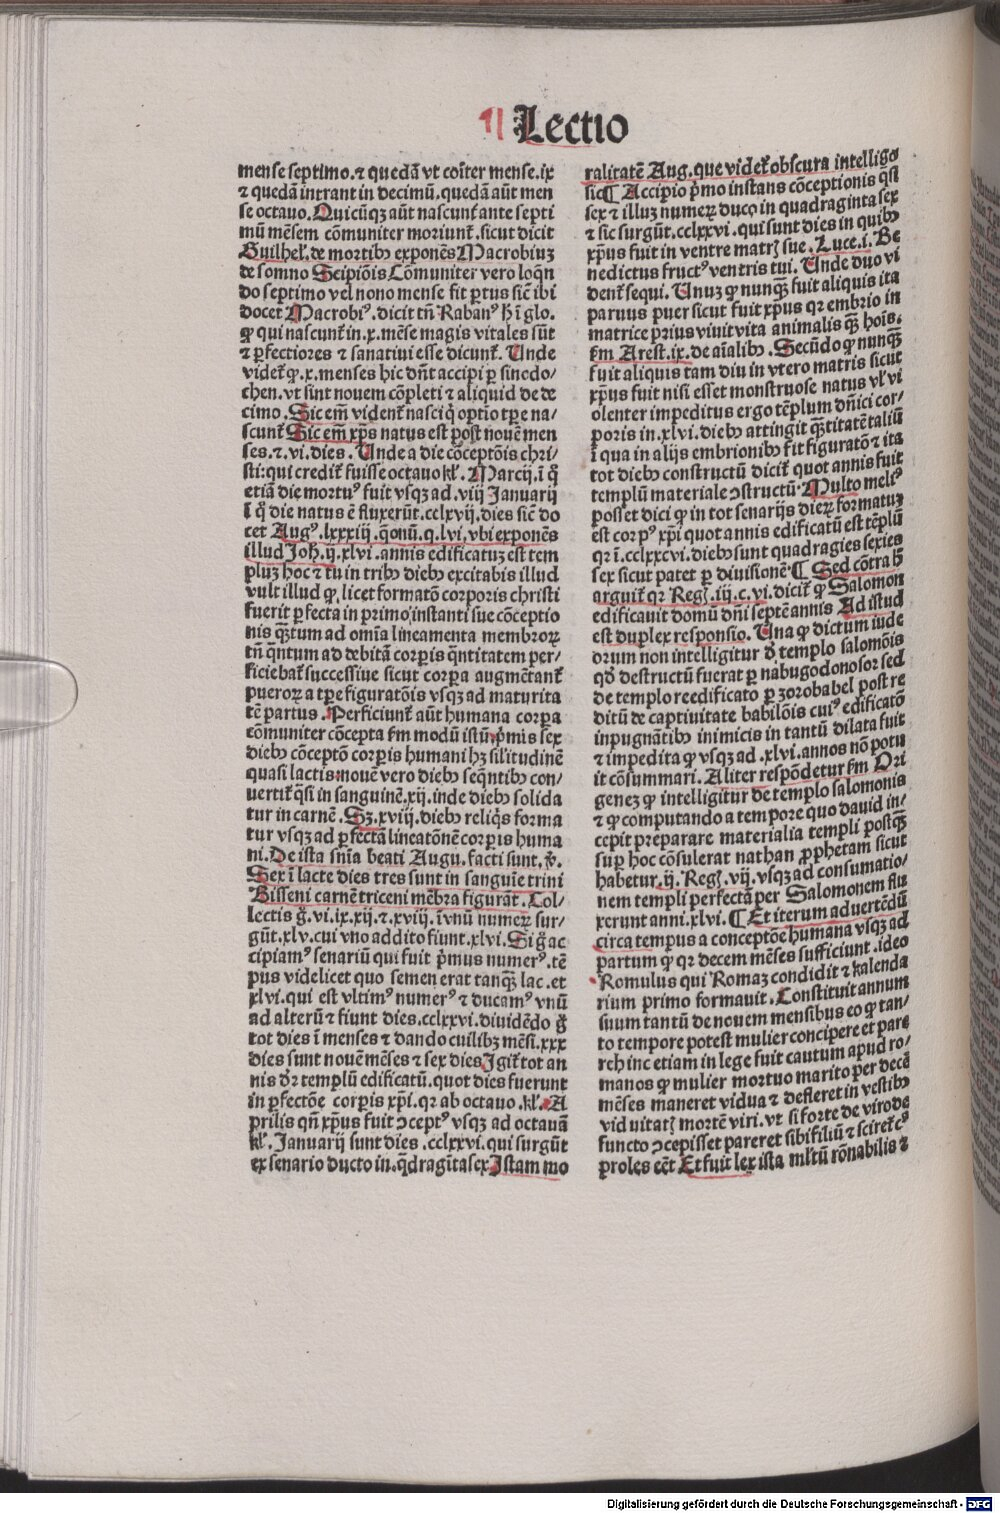 ¶ Lectio
mense septimo.⁊ quedā vt coīter mense.ix
⁊ quedā intrant in decimū.quedā aūt men
se octauo.Quicūqꝫ aūt nascunt᷑ ante septi
mū mēsem cōmuniter moriunt᷑.sicut dicit
Guilhel᷑.de mortibꝰ exponēs Macrobiuꝫ
de somno Scipiōis Cōmuniter vero loqn̄
do septimo vel nono mense fit ꝑtus sic̄ ibi
docet Macrobiꝰ.dicit tn̄ Rabanꝰ h̄ ī glo.
ꝙ qui nascunt᷑ in.x.mēse magis vitales sūt
⁊ ꝑfectiores ⁊ sanatiui esse dicunt᷑. Unde
videt᷑ ꝙ.x.menses hic dn̄t accipi ꝑ sinedo/
chen.vt sint nouem cōpleti ⁊ aliquid de de
cimo.Sic em̄ vident᷑ nasci q̇ optīo tꝑe na/
scunt᷑ Sic em̄ xp̄s natus est post nouē men
ses.⁊.vi.dies. Unde a die cōceptōis chri/
sti:qui credit᷑ fuisse octauo kl᷑. Marcij.ī q̄
etiā die mortuꝰ fuit vsqꝫ ad.viij Januarij
ī q̄ die natus ē fluxerūt.cclxvij.dies sic̄ do
cet Augꝰ.lxxxiij.q̄onū.q.lvi.vbi exponēs
illud Joh̄.ij.xlvi.annis edificatuꝫ est tem
pluꝫ hoc ⁊ tu in tribꝰ diebꝰ excitabis illud
vult illud ꝙ licet formatō corporis christi
fuerit ꝑfecta in primo instanti sue cōceptio
nis qꝫ̄tum ad omīa lineamenta membroꝝ
tn̄ qn̄tum ad debitā corꝑis qn̄titatem per/
ficiebat᷑ successiue sicut corꝑa augmētant᷑
pueroꝝ a tꝑe figuratōis vsqꝫ ad maturita
tē partus .Perficiunt᷑ aūt humana corꝑa
cōmuniter cōcepta ẜm modū istū.p̄mis sex
diebꝰ cōceptō corꝑis humani hꝫ sil᷑itudinē
quasi lactis:nouē vero diebꝰ seq̄ntibꝰ con/
vertit᷑ q̄si in sanguinē.xij.inde diebꝰ solida
tur in carnē .Sꝫ.xviij.diebꝰ reliq̄s forma
tur vsqꝫ ad ꝑfectā lineatōnē corꝑis huma
ni.De ista sn̄ia beati Augu.facti sunt.v̄.
Sex ī lacte dies tres sunt in sanguīe trini
Bisseni carnē triceni mēbra figurāt .Col/
lectis g̊.vi.ix.xij.⁊.xviij.ī vnū numeꝝ sur/
gūt.xlv.cui vno addito fiunt.xlvi.Si g̊ ac
cipiamꝰ senariū qui fuit p̄mus numerꝰ.tē
pus videlicet quo semen erat tanqꝫ̄ lac.et
xlvi.qui est vltimꝰ numerꝰ ⁊ ducamꝰ vnū
ad alterū ⁊ fiunt dies.cclxxvi.diuidēdo g̊
tot dies ī menses ⁊ dando cuilibꝫ mēsi.xxx
dies sunt nouē mēses ⁊ sex dies Igit᷑ tot an
nis dr̄ templū edificatū.quot dies fuerunt
in ꝑfectōe corꝑis xp̄i.qꝛ ab octauo .kl᷑.A
prilis qn̄ xp̄us fuit ↄceptꝰ vsqꝫ ad octauā
kl᷑. Januarij sunt dies .cclxxvi.qui surgūt
ex senario ducto in.q̄dragīta sex Istam mo
ralitatē Aug.que videt᷑ obscura intelligo
sic¶ Accipio p̄mo instans cōceptionis q̄si
sex ⁊ illuꝫ numeꝝ duco in quadraginta sex
⁊ sic surgūt.cclxxvi.qui sunt dies in quibꝰ
xp̄us fuit in ventre matrꝭ sue .Luce.i. Be
nedictus fructꝰ ventris tui. Unde duo vi
dent᷑ sequi. Unuꝫ ꝙ nunqꝫ̄ fuit aliquis ita
paruus puer sicut fuit xp̄us qꝛ embrio in
matrice prius viuit vita animalis qꝫ̄ hoīs.
ẜm Arest.ix.de aīalibꝰ .Secūdo ꝙ nunqꝫ̄
fuit aliquis tam diu in vtero matris sicut
xp̄us fuit nisi esset monstruose natus vl᷑ vi
olenter impeditus ergo tēplum dn̄ici cor/
poris in.xlvi.diebꝰ attingit qꝫ̄titatē taliū
ī qua in alijs embrionibꝰ fit figuratō ⁊ ita
tot diebꝰ constructū dicit᷑ quot annis fuit
templū materiale ↄstructū. Multo meliꝰ
posset dici ꝙ in tot senarijs dieꝝ formatuꝫ
est corpꝰ xp̄i quot annis edificatū est tēplū
qꝛ ī.cclxxcvi.diebꝰ sunt quadragies sexies
sex sicut patet ꝑ diuisionē.¶ Sed cōtra h̄
arguit᷑ qꝛ Regꝭ.iij.c.vi.dicit᷑ ꝙ Salomon
edificauit domū dn̄i septē annis Ad istud
est duplex responsio. Una ꝙ dictum iude
orum non intelligitur d̄ templo salomōis
qd̄ destructū fuerat ꝑ nabugodonosor sed
de templo reedificato ꝑ zorobabel post re
ditū de captiuitate babilōis cuiꝰ edificatō
inpugnātibꝰ inimicis in tantū dilata fuit
⁊ impedita ꝙ vsqꝫ ad .xlvi.annos nō potu
it cōsummari. Aliter respōdetur ẜm Ori
geneꝫ ꝙ intelligitur de templo salomonis
⁊ ꝙ computando a tempore quo dauid in/
cepit preparare materialia templi postqꝫ̄
suꝑ hoc cōsulerat nathan ꝓphetam sicut
habetur.ij. Regꝭ.vij.vsqꝫ ad consumatio/
nem templi perfectā per Salomonem flu
xerunt anni.xlvi.¶ Et iterum aduertēdū
circa tempus a conceptōe humana vsqꝫ ad
partum ꝙ qꝛ decem mēses sufficiunt.ideo
Romulus qui Romaꝫ condidit ⁊ kalenda
rium primo formauit .Constituit annum
suum tantū de nouem mensibus eo ꝙ tan/
to tempore potest mulier concipere et pare
reh inc etiam in lege fuit cautum apud ro/
manos ꝙ mulier mortuo marito per decē
mēses maneret vidua ⁊ defleret in vestibꝰ
viduitatꝭ mortē viri.vt si forte de viro de
functo ↄcepisset pareret sibi filiū ⁊ sciret᷑ cꝰ
proles eēt Et fuit lex ista ml᷑tū rōnabilis ⁊
Digitalisierung gefördert durch die Deutsche Forschungsgemeinschaft - DFG